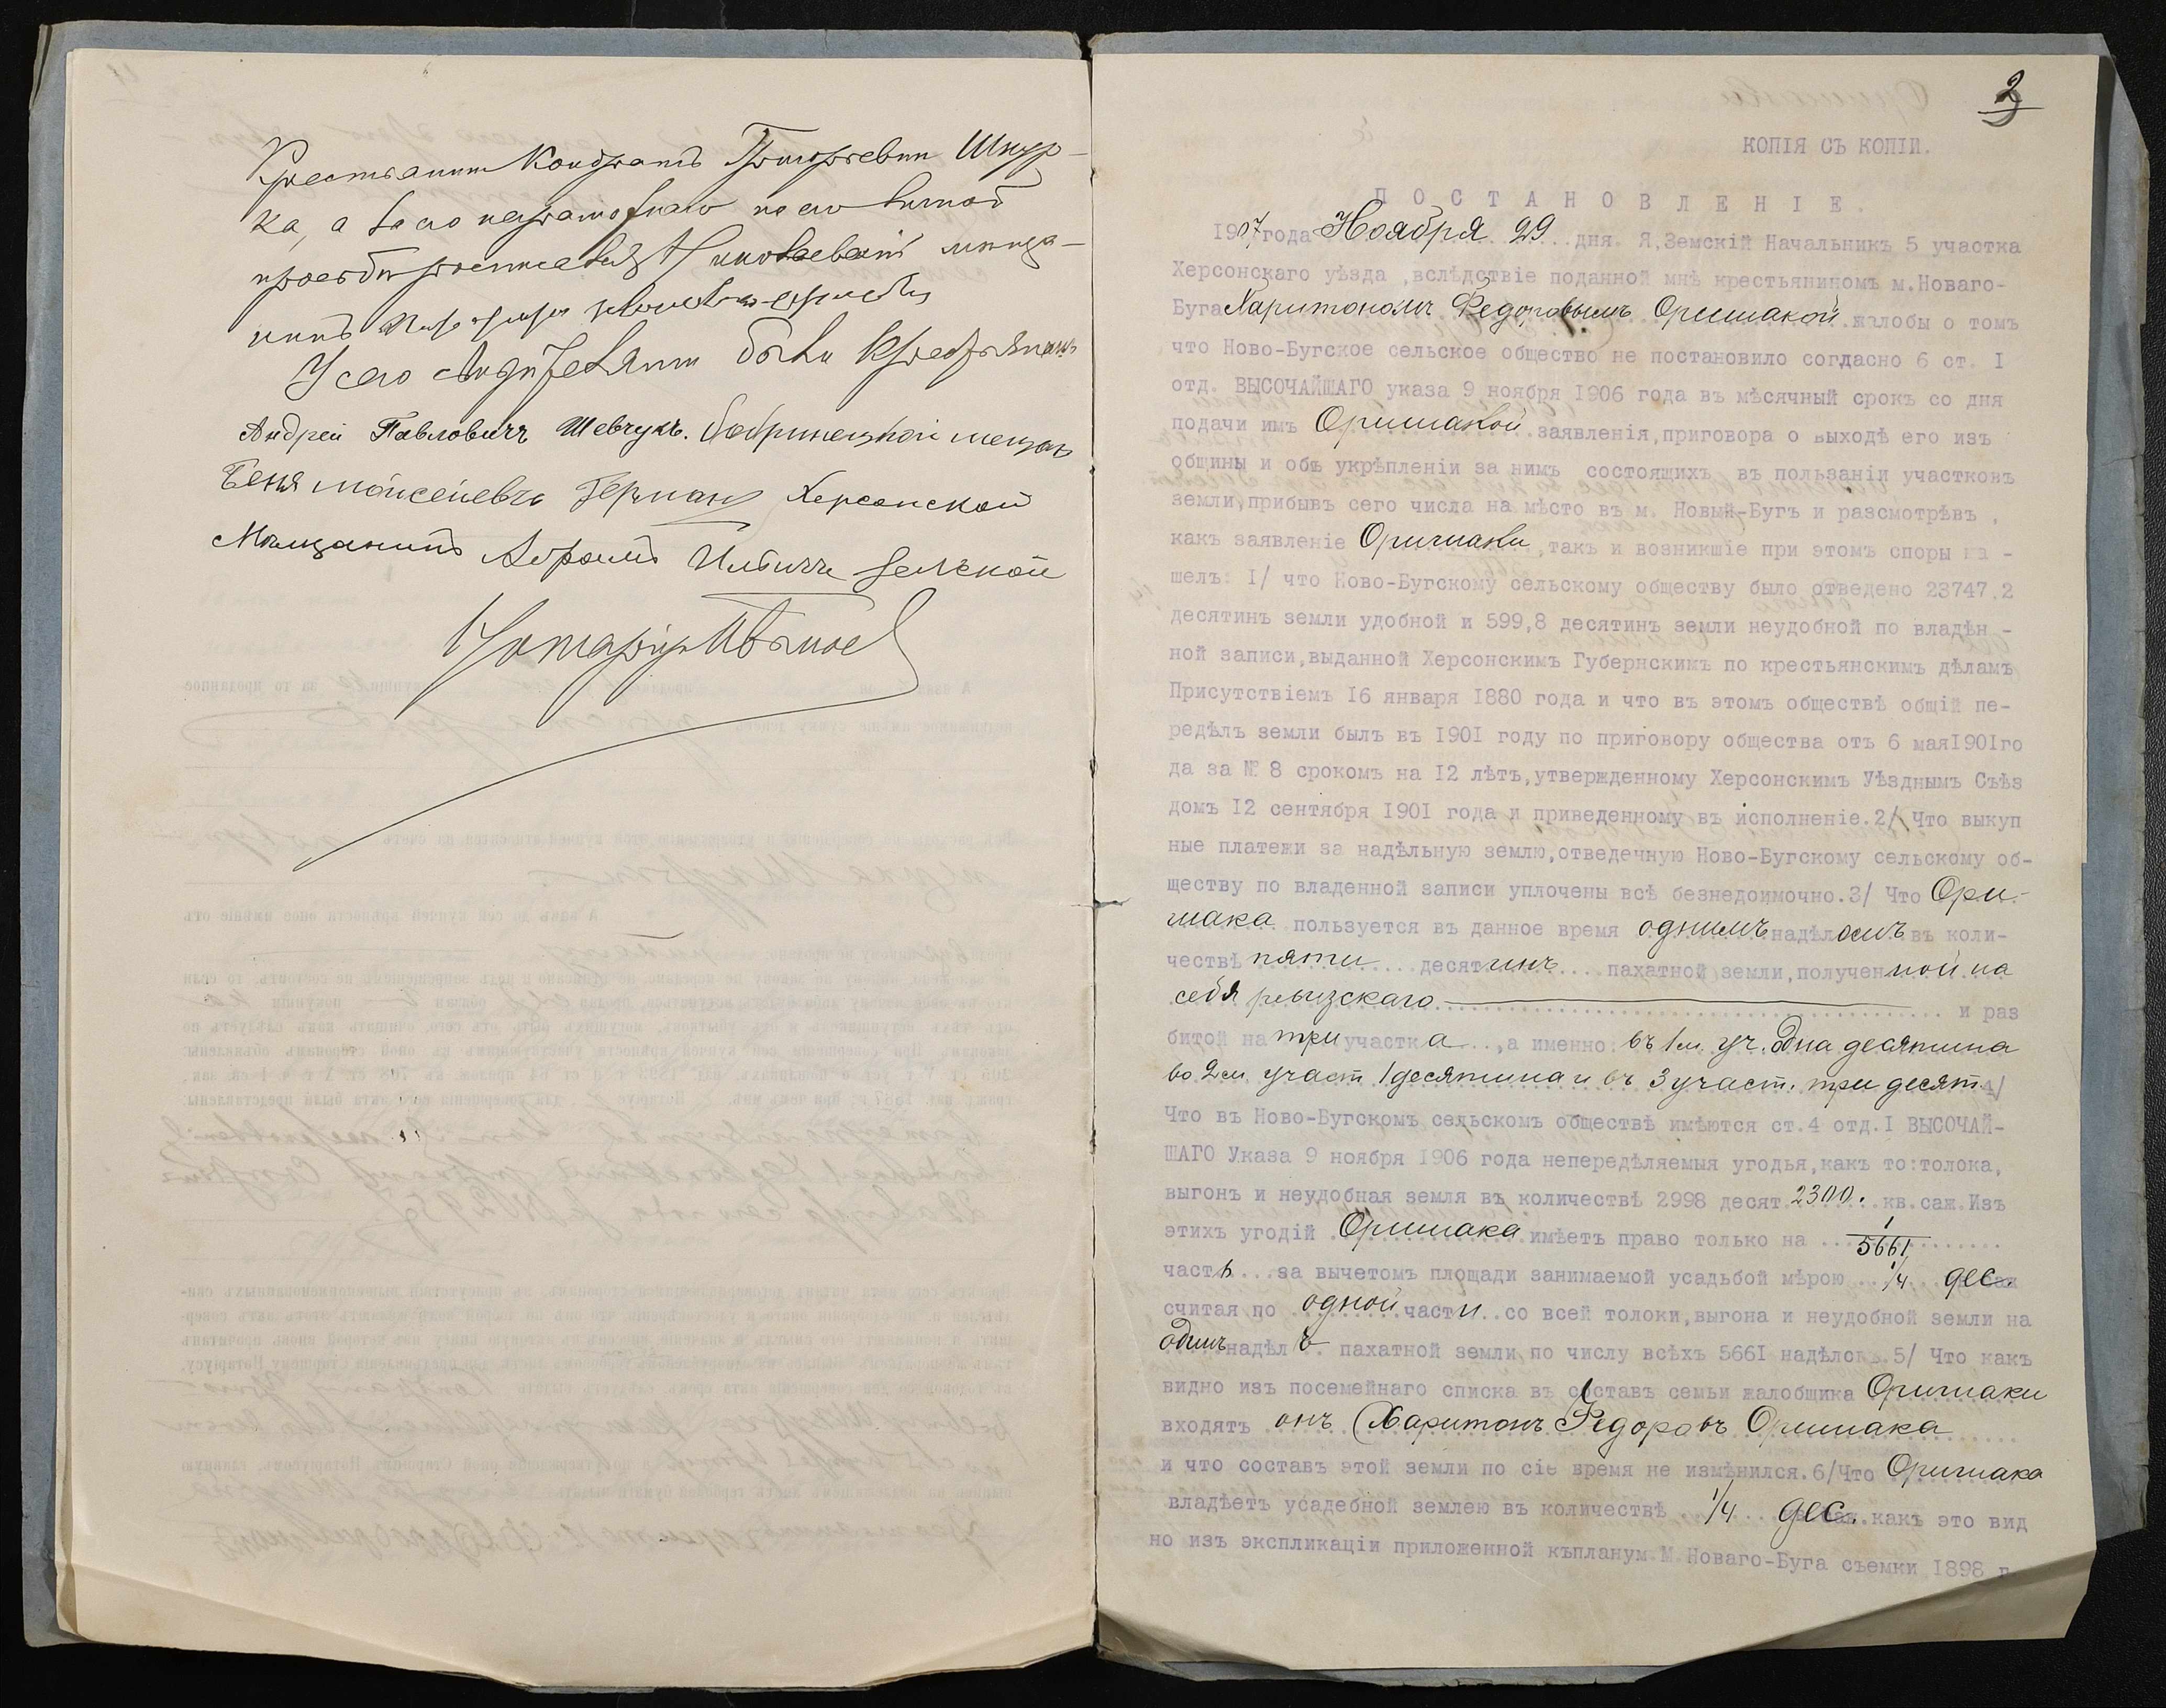 Крестьянинъ Кондратъ Григорьевичъ Шкур-
ка, а за его неграмотнаго по его личной
просьбе росписался Николаевскій мѣща-
нинъ
У сего свидѣтелями были Крестьянинъ
Андрей Павловичъ Шевчукъ. Бобринецкой мещан
Беня Мойсеевъ Герман Херсонской
Мѣщанинъ Абрамъ Ильичъ Зельской
Нотаріусъ
2
КОПІЯ СЪ КОПІИ.
ПОСТАНОВЛЕНІЕ.
1907 года Ноября 29 дня. Я, Земскій Начальникъ 5 участка
Херсонскаго уѣзда ,вслѣдствіе поданной мнѣ крестьяниномъ м.Новаго-
Буга Харитономъ Федоровымъ Оришакой жалобы о томъ
что Ново-Бугское сельское общество не постановило согдасно 6 ст. I
отд. ВЫСОЧАЙШАГО указа 9 ноября I906 года въ мѣсячный срокъ со дня
подачи имъ Оришакой заявленія,приговора о выходѣ его изъ
общины и объ укрѣпленіи за нимъ состоящихъ въ пользаніи участковъ
земли,прибывъ сего числа на мѣсто въ м. Новый-Бугъ и разсмотрѣвъ ,
какъ заявленіе Оришаки ,такъ и возникшіе при этомъ споры на -
шелъ: I/ что Ново-Бугскому сельскому обществу было отведено 23747.2
десятинъ земли удобной и 599,8 десятинъ земли неудобной по владѣн -
ной записи,выданной Херсонскимъ Губернскимъ по крестьянскимъ дѣламъ
Присутствіемъ I6 января I880 года и что въ этомъ обществѣ общій пе-
редѣлъ земли былъ въ I90I году по приговору общества отъ 6 маяI90Iго
да за № 8 срокомъ на I2 лѣтъ,утвержденному Херсонскимъ Уѣзднымъ Съѣз
домъ I2 сентября I90I года и приведенному въ исполненіе.2/ Что выкуп
ные платежи за надѣльную землю,отведечную Ново-Бугскому сельскому об-
ществу по владенной записи уплочены всѣ безнедоимочно.3/ Что Ори-
шака пользуется въ данное время однимъ надѣломъ въ коли-
чествѣ пяти десятинъ пахатной земли,полученной на
себя ревизскаго и раз
битой на три участка ,а именно: въ 1м уч. Одна десятина
во 2м участ 1 десятина и въ 3 участ. три десят. 4/
Что въ Ново-Бугскомъ сельскомъ обществѣ имѣются ст.4 отд.I ВЫСОЧАЙ-
ШАГО Указа 9 ноября I906 года непередѣляемыя угодья,какъ то:толока,
выгонъ и неудобная земля въ количествѣ 2998 десят 2300. кв.саж.Изъ
этихъ угодій Оришака имѣетъ право только на 1/5661
часть за вычетомъ площади занимаемой усадьбой мѣрою 1/4 дес.
считая по одной части со всей толоки,выгона и неудобной земли на
одинъ надѣлъ пахатной земли по числу всѣхъ 566I надѣловъ.5/ Что какъ
видно изъ посемейнаго списка въ составъ семьи жалобщика Оришаки
входятъ онъ Харитонъ Федоровъ Оришака
и что составъ этой земли по сіе время не измѣнился.6/Что Оришака
владѣетъ усадебной землею въ количествѣ 1/4 дес. какъ это вид
но изъ экспликаціи приложенной къпланум.М.Новаго-Буга съемки I898 г.